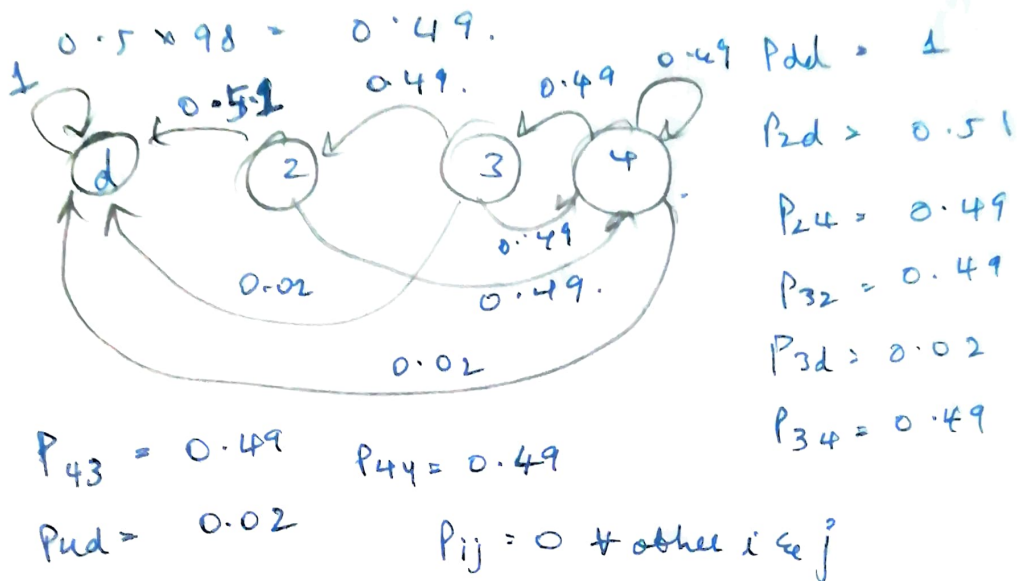 0.5 x 98 = 0.49.
1
0.51
0.49.
0.49
0.49
d
2
3
4
0.49
0.02
0.49.
0.02
Pdd = 1
P2d = 0.51
P24 = 0.49
P32 = 0.49
P3d = 0.02
P34 = 0.49
P43 = 0.49
P44 = 0.49
P4d = 0.02
Pij = 0 ∀ other i & j